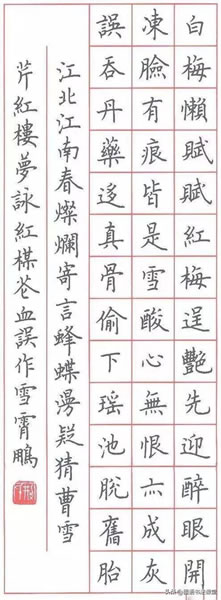 白梅懶賦賦紅梅逞艷先迎醉眼開
凍臉有痕皆是雪酸心無恨亦成灰
誤吞丹藥迻真骨偷下瑤池脫舊胎
江北江南春燦爛寄言蜂蝶漫疑猜曹雪
芹紅樓夢詠紅楳花血誤作雪霄鵬